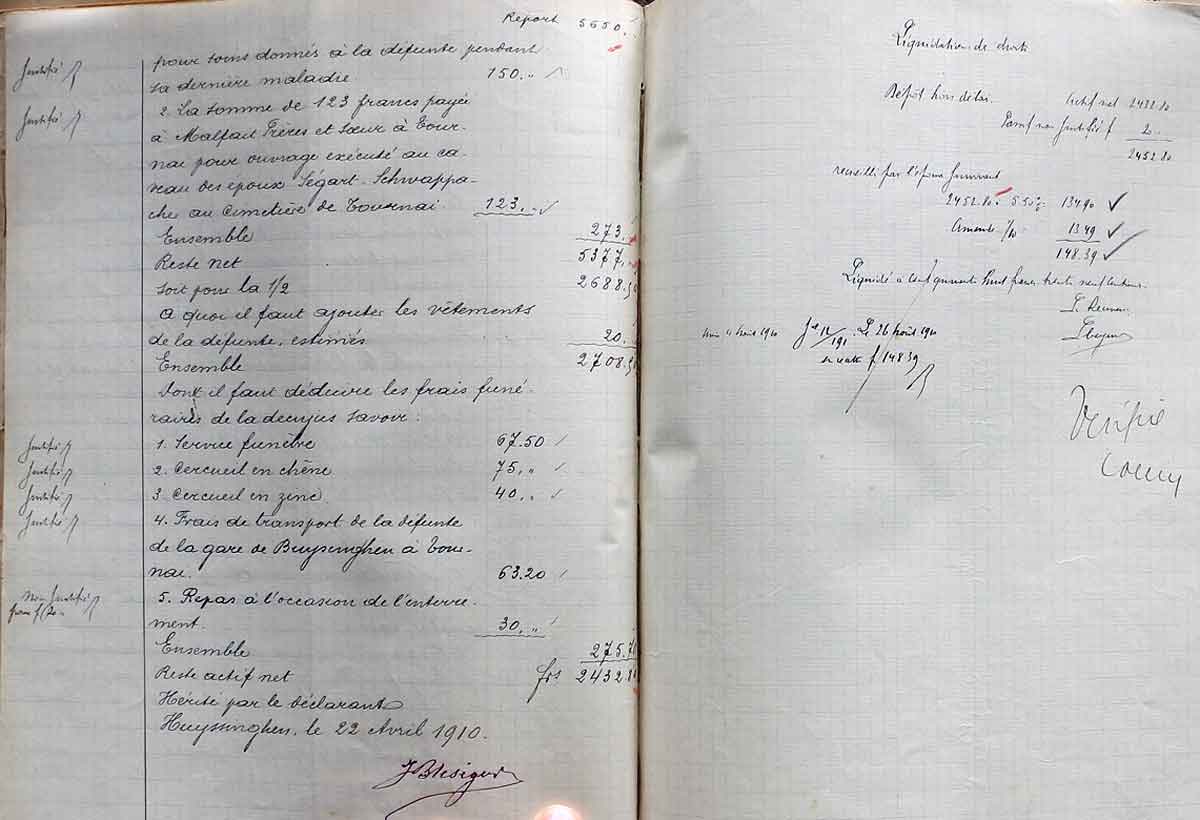 Report 5650.
Justifié pour soins donnés à la défunte pendant
sa dernière maladie 150. „
Justifié 2. La somme de 123 francs payée
à Malfait Frères et Sœur à Tour-
nai pour ouvrage exécuté au ca-
veau des époux Ségart-Schwappa-
cher au Cimetière de Tournai. 123. „
Ensemble 273.
Reste net 5377.
Soit pour la 1/2 2688.50
A quoi il faut ajouter les vêtements
de la défunte, estimés 20.
Ensemble 2708.50
Dont il faut déduire les frais funé-
raires de la decujus savoir:
Justifié 1. Service funèbre 67.50
Justifié 2. Cercueil en chêne 75. „
Justifié 3. Cercueil en zinc 40. „
Justifié 4. Frais de transport de la défunte
de la gare de Buysinghen à Tour-
nai. 63.20
Non justifié 5. Repas à l'occasion de l'enterre-
pour f 20 ment. 30. „
Ensemble 275.70
Reste actif net frs 2432.80
Hérité par le déclarant
Huyssinghen, le 22 Avril 1910.
Liquidation de droits
Dépôt hors délai. Actif net 2432.80
Passif non justifié f 20.
2452.80
recueilli par l'époux survivant
2452.80 5.50% 134.90
Amende 1/10 13.49
148.39
Liquidé à cent quarante huit francs trente neuf centimes
août 1910 Le 26 août 1910
f 148.39
Vérifié